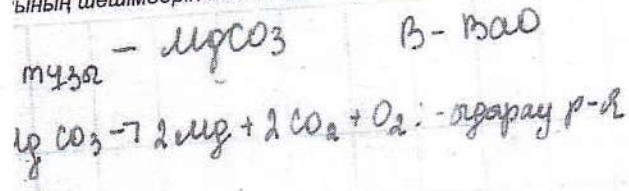 ының шешімдерін
тұзы – MgCO3 B - BaO
Mg CO3 → 2 Mg + 2 CO2 + O2 : - ыдырау р-я